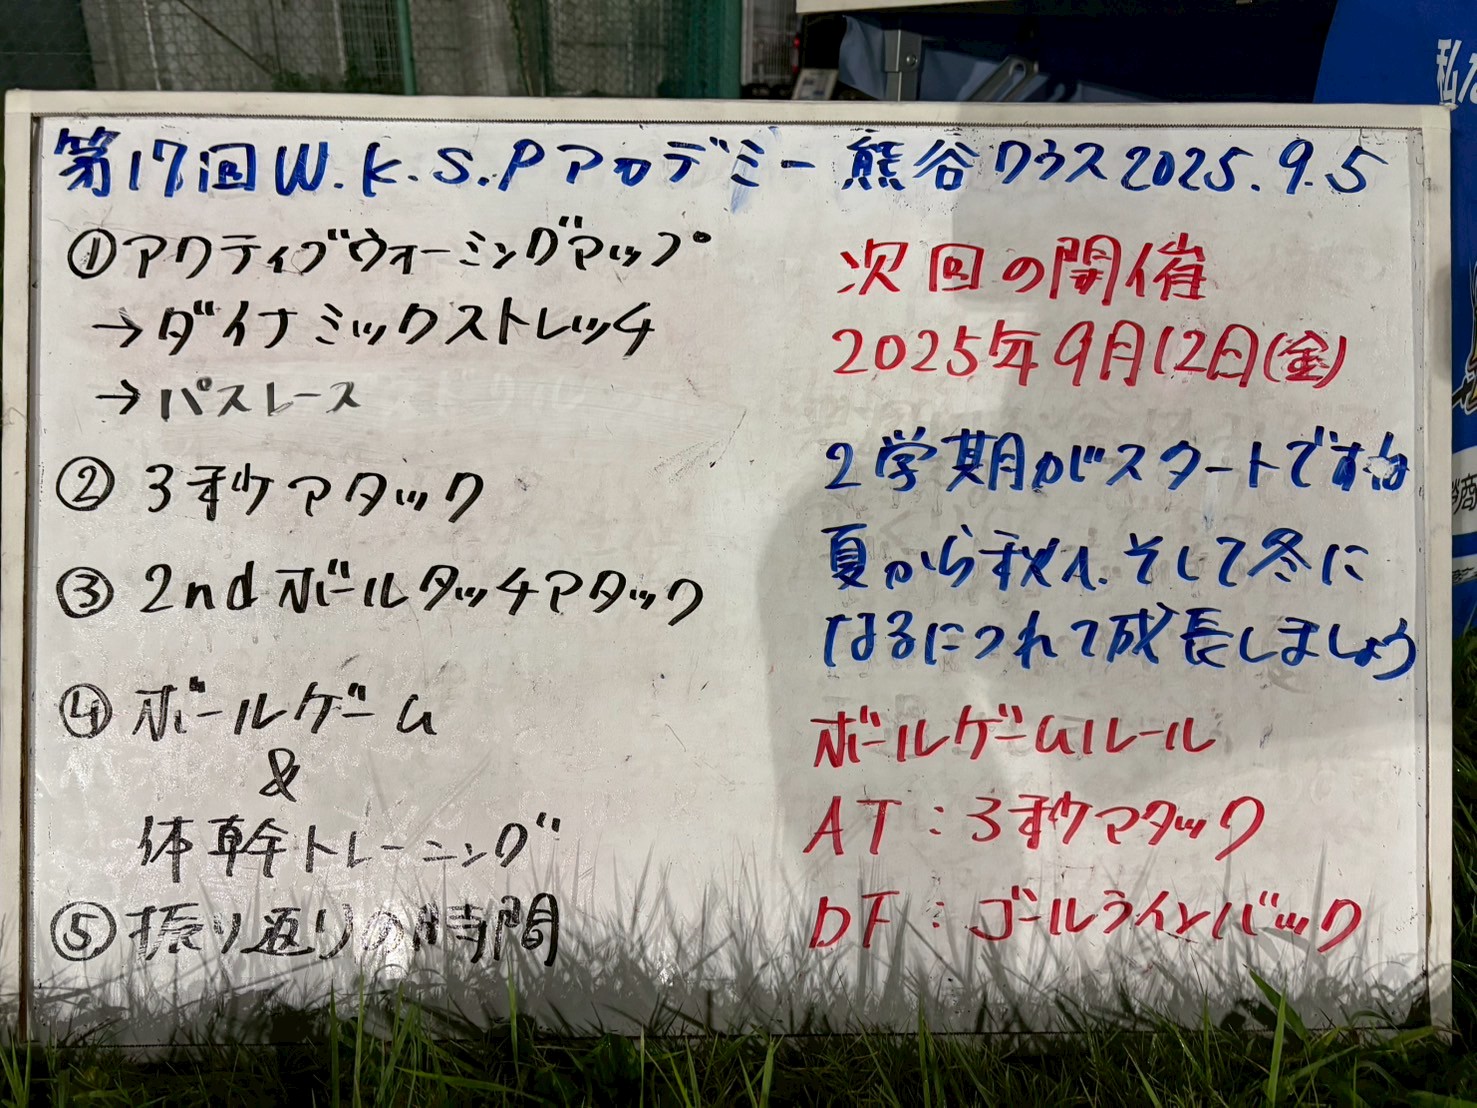 第17回W.K.S.Pアカデミー熊谷クラス2025.9.5
①アクティブウォーミングアップ
→ダイナミックストレッチ
→パスレース
②3秒アタック
③2ndボールタッチアタック
④ボールゲーム
&
体幹トレーニング
⑤振り返りの時間
次回の開催
2025年9月12日(金)
2学期がスタートですね
夏から秋へ、そして冬に
なるにつれて成長しましょう
ボールゲームルール
AT:3秒アタック
DF:ゴールラインバック
私た
商